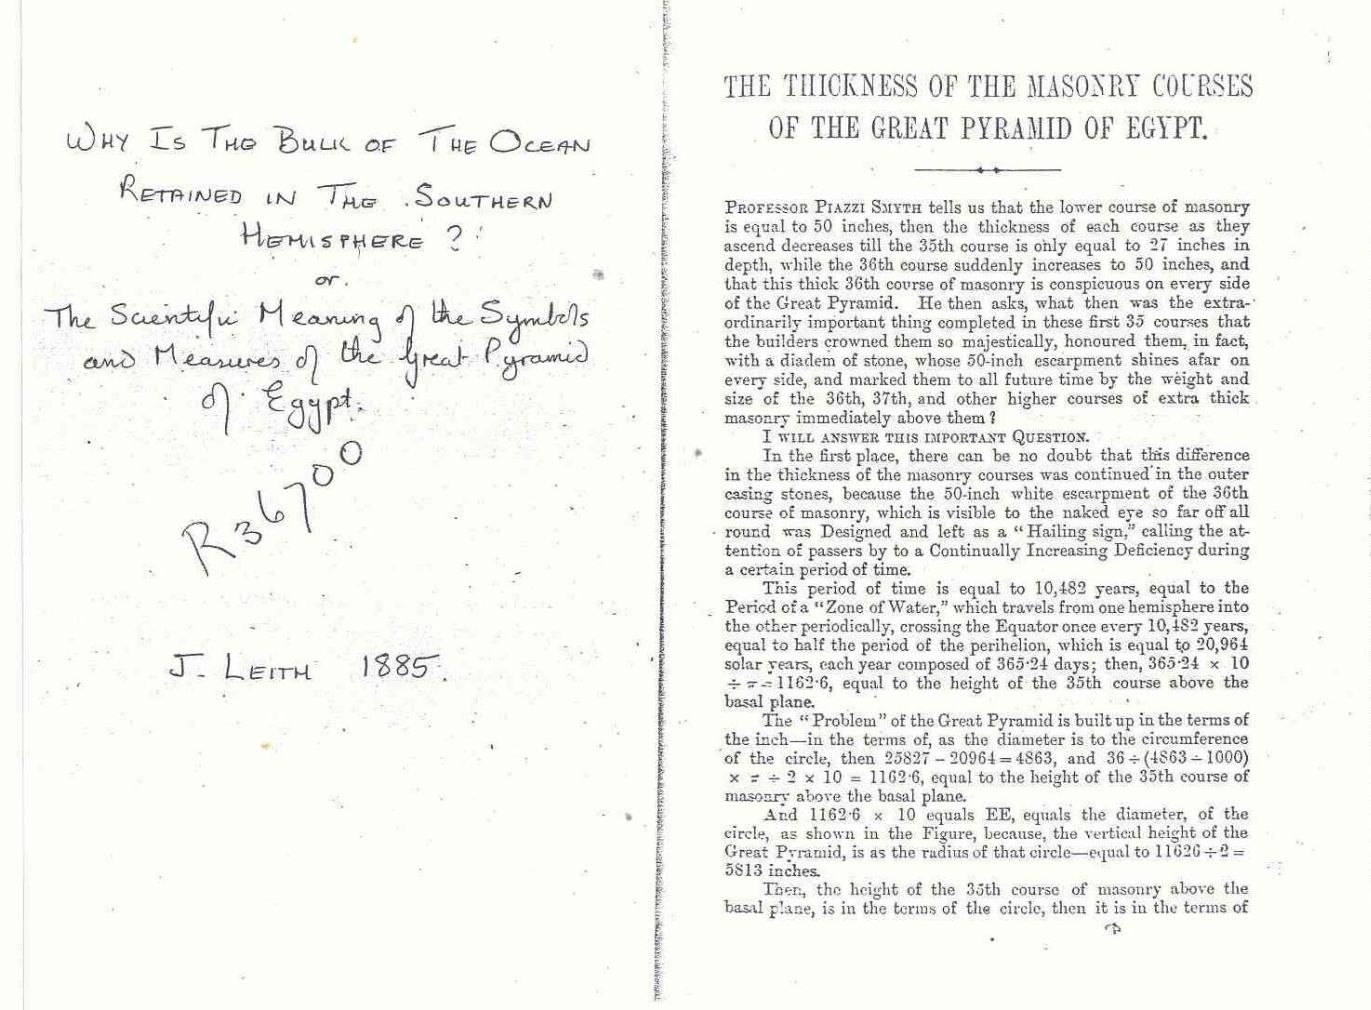 WHY IS THE BULK OF THE OCEAN
RETAINED IN THE SOUTHERN
HEMISPHERE ?
or.
The Scientific Meaning of the Symbols
and Measures of the Great Pyramid
of Egypt.
R36700
J. LEITH 1885.
THE THICKNESS OF THE MASONRY COURSES
OF THE GREAT PYRAMID OF EGYPT.
PROFESSOR PIAZZI SMYTH tells us that the lower course of masonry
is equal to 50 inches, then the thickness of each course as they
ascend decreases till the 35th course is only equal to 27 inches in
depth, while the 36th course suddenly increases to 50 inches, and
that this thick 36th course of masonry is conspicuous on every side
of the Great Pyramid. He then asks, what then was the extra-
ordinarily important thing completed in these first 35 courses that
the builders crowned them so majestically, honoured them, in fact,
with a diadem of stone, whose 50-inch escarpment shines afar on
every side, and marked them to all future time by the weight and
size of the 36th, 37th, and other higher courses of extra thick
masonry immediately above them ?
I WILL ANSWER THIS IMPORTANT QUESTION.
In the first place, there can be no doubt that this difference
in the thickness of the masonry courses was continued in the outer
casing stones, because the 50-inch white escarpment of the 36th
course of masonry, which is visible to the naked eye so far off all
round was Designed and left as a "Hailing sign," calling the at-
tention of passers by to a Continually Increasing Deficiency during
a certain period of time.
This period of time is equal to 10,482 years, equal to the
Period of a "Zone of Water," which travels from one hemisphere into
the other periodically, crossing the Equator once every 10,482 years,
equal to half the period of the perihelion, which is equal to 20,964
solar years, each year composed of 365·24 days; then, 365·24 × 10
÷ π = 1162·6, equal to the height of the 35th course above the
basal plane.
The "Problem" of the Great Pyramid is built up in the terms of
the inch—in the terms of, as the diameter is to the circumference
of the circle, then 25827 − 20964 = 4863, and 36 ÷ (4863 ÷ 1000)
× π ÷ 2 × 10 = 1162·6, equal to the height of the 35th course of
masonry above the basal plane.
And 1162·6 × 10 equals EE, equals the diameter, of the
circle, as shown in the Figure, because, the vertical height of the
Great Pyramid, is as the radius of that circle—equal to 11626 ÷ 2 =
5813 inches.
Then, the height of the 35th course of masonry above the
basal plane, is in the terms of the circle, then it is in the terms of